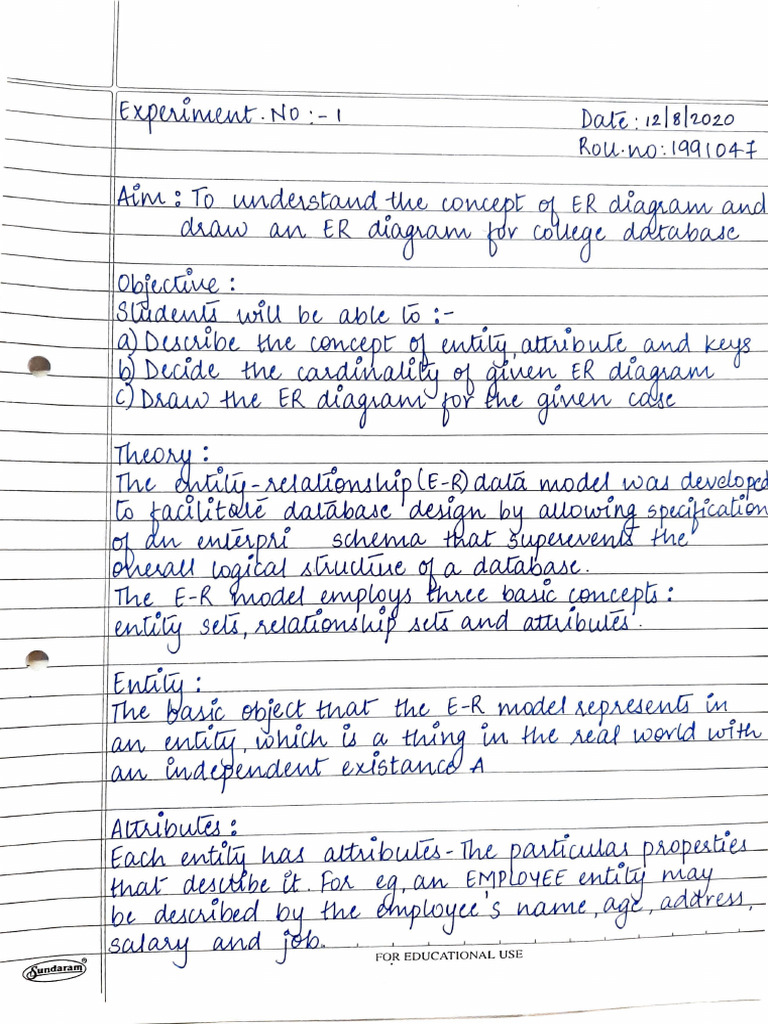 Experiment.No :- 1
Date : 12/8/2020
Roll.no: 1991047
Aim : To understand the concept of ER diagram and
draw an ER diagram for college database
Objective :
Students will be able to :-
a) Describe the concept of entity, attribute and keys
b) Decide the cardinality of given ER diagram
c) Draw the ER diagram for the given case
Theory :
The entity-relationship (E-R) data model was developed
to facilitate database design by allowing specification
of an enterpri schema that superevents the
overall logical structure of a database.
The E-R model employs three basic concepts :
entity sets, relationship sets and attributes.
Entity :
The basic object that the E-R model represents in
an entity, which is a thing in the real world with
an independent existance A
Attributes :
Each entity has attributes - The particular properties
that describe it. For eg, an EMPLOYEE entity may
be described by the employee's name, age, address,
salary and job.
Sundaram®
FOR EDUCATIONAL USE